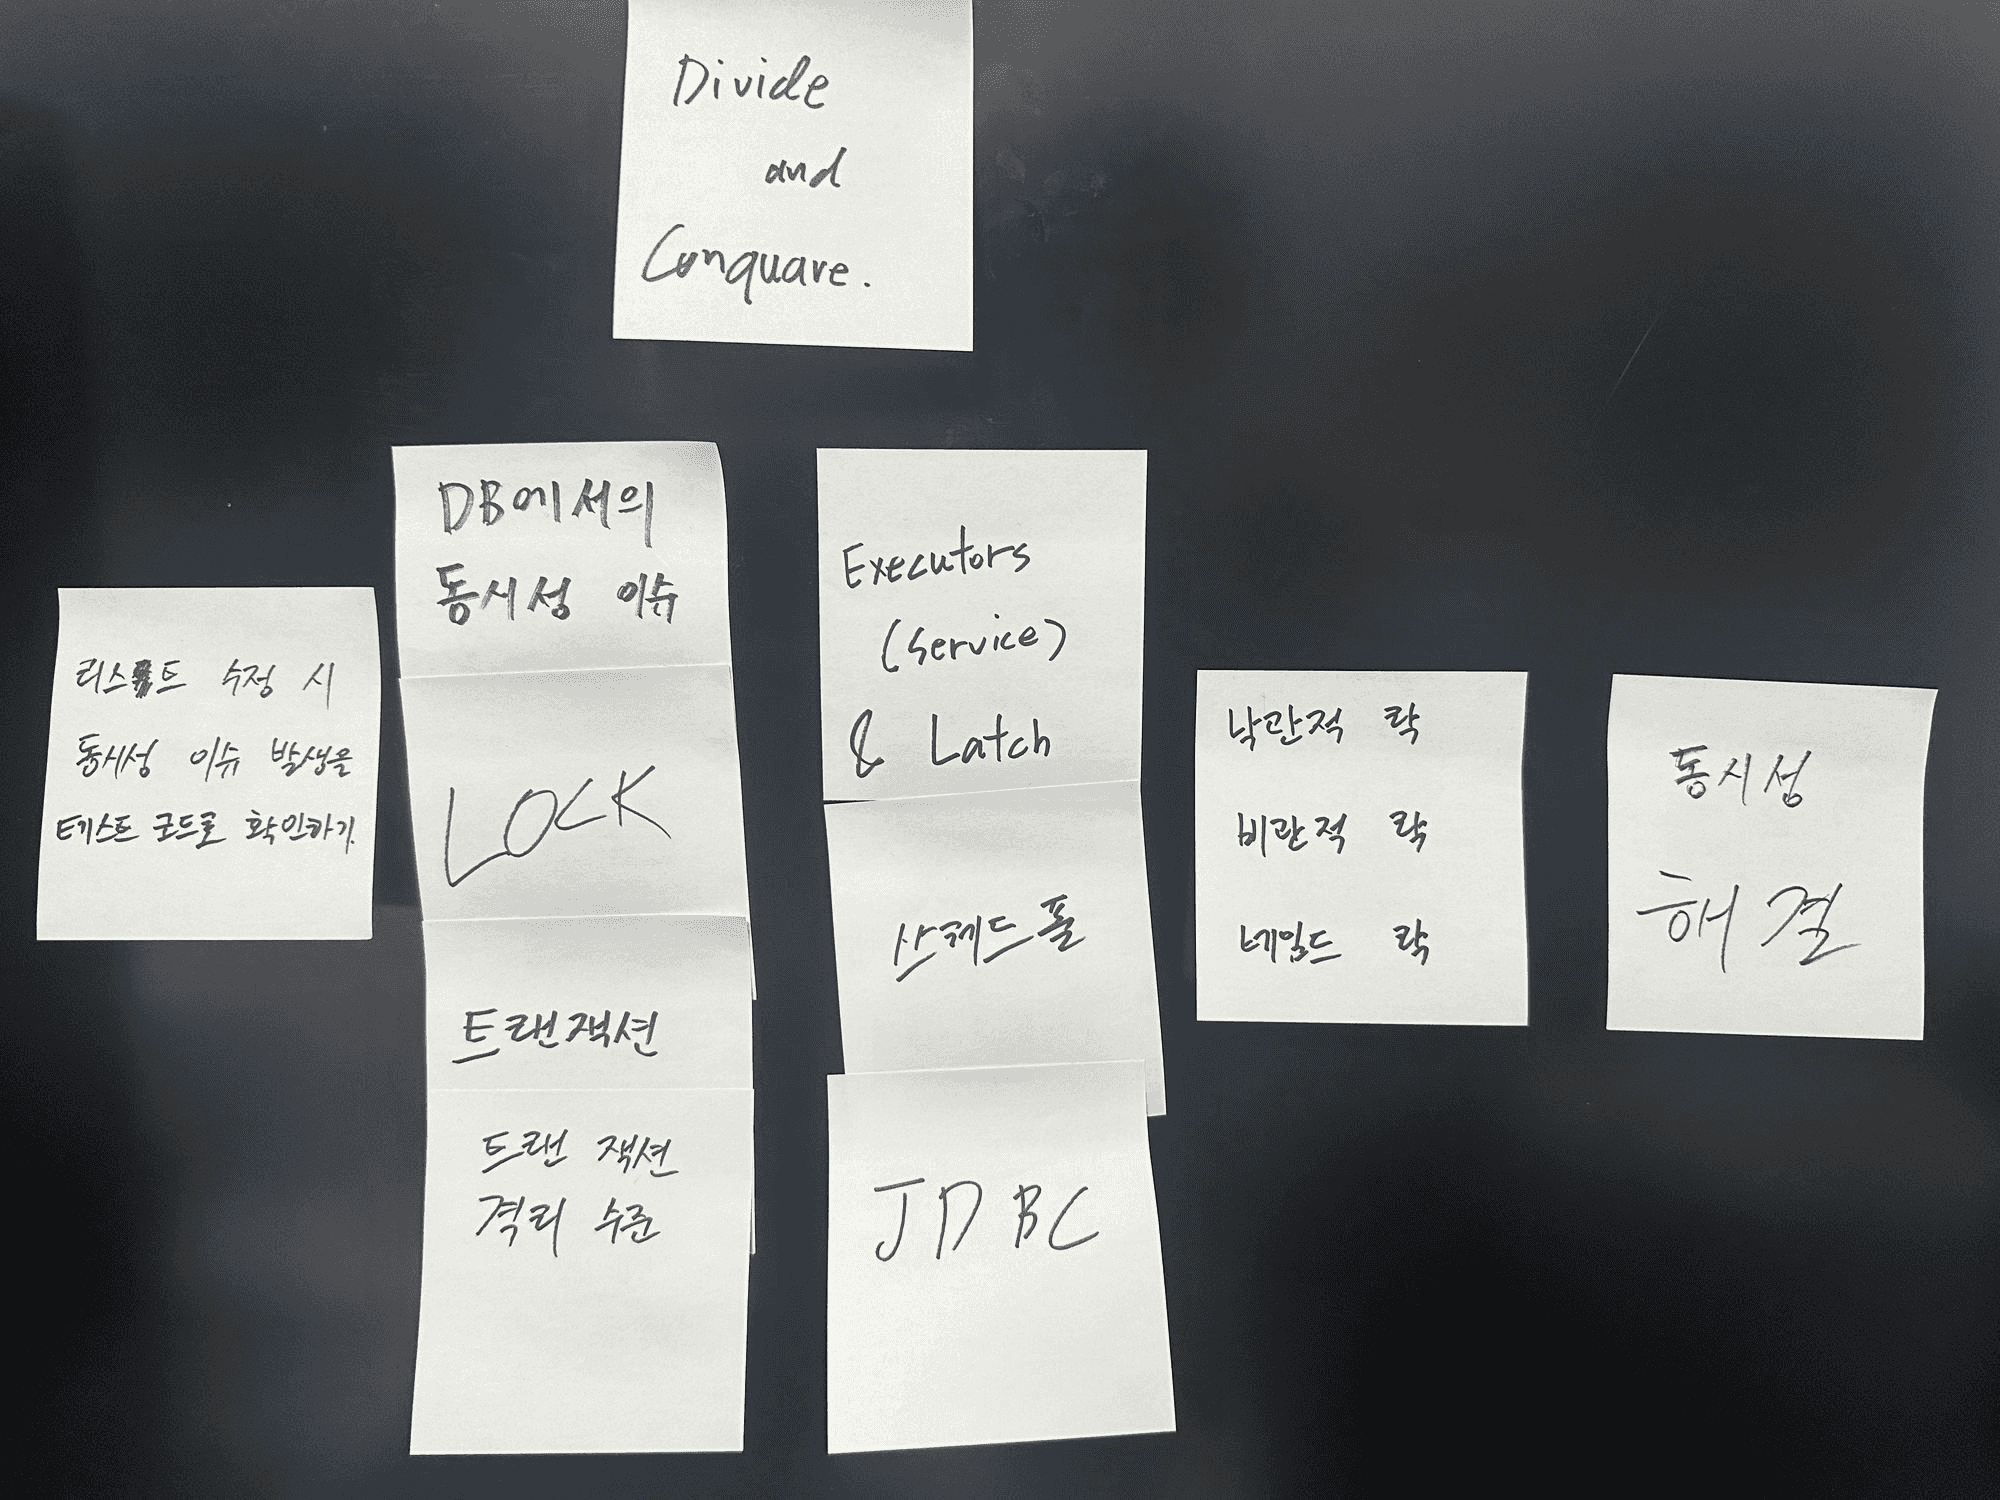 Divide
and
Conquare.
리스트 수정 시
동시성 이슈 발생을
테스트 코드로 확인하기.
DB에서의
동시성 이슈
LOCK
트랜잭션
트랜 잭션
격리 수준
Executors
(Service)
& Latch
스레드 풀
JDBC
낙관적 락
비관적 락
네임드 락
동시성
해결